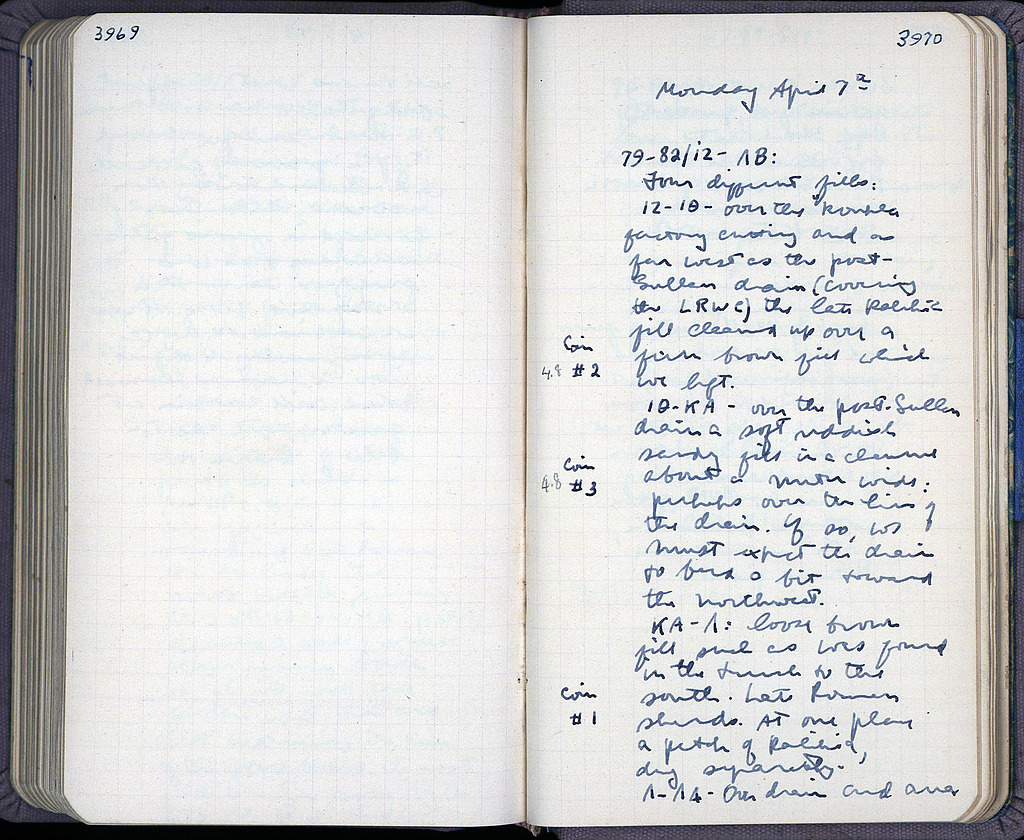 3969
3970
Monday April 7
79-82/12-ΛB:
Four different fills:
12-1θ- over the "Roubla
factory cutting and as
far west as the post-
Sullan drain (covering
the LRWC) the late
fill cleaned up over a
Coin
firm brown fill which
4.8 #2
we left.
1θ-KA - over the post-Sullan
drain a soft reddish
sandy fill in a channel
Coin
about a meter wide:
4.8 #3
perhaps over the line of
the drain. If so, we
must expect the drain
to bend a bit toward
the northwest.
KA-Λ: loose brown
fill such as was found
in the trench to the
Coin
south. Late Roman
#1
sherds. At one place
a patch of
dug separately.
Λ-ΛΔ- Over drain and area